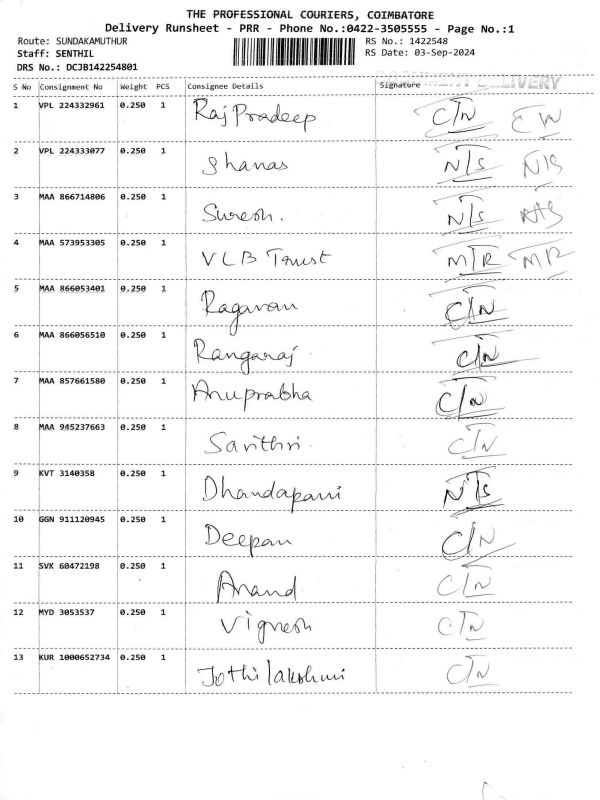 THE PROFESSIONAL COURIERS, COIMBATORE
Delivery Runsheet - PRR - Phone No.:0422-3505555 - Page No.:1
Route: SUNDAKAMUTHUR RS No.: 1422548
Staff: SENTHIL RS Date: 03-Sep-2024
DRS No.: DCJB142254801
S No Consignment No Weight PCS Consignee Details Signature DELIVERY
1 VPL 224332961 0.250 1 Raj Pradeep C/N
2 VPL 224333077 0.250 1 Shanas N/S N/S
3 MAA 866714806 0.250 1 Suresh. N/S N/S
4 MAA 573953305 0.250 1 VLB Trust M/R MR
5 MAA 866053401 0.250 1 Ragavan C/N
6 MAA 866056510 0.250 1 Rangaraj C/N
7 MAA 857661580 0.250 1 Anuprabha C/N
8 MAA 945237663 0.250 1 Savithri. C/N
9 KVT 3140358 0.250 1 Dhandapani N/S
10 GGN 911120945 0.250 1 Deepan C/N
11 SVK 60472198 0.250 1 Anand C/N
12 MYD 3053537 0.250 1 Vignesh C/N
13 KUR 1000652734 0.250 1 Jothilakshmi C/N